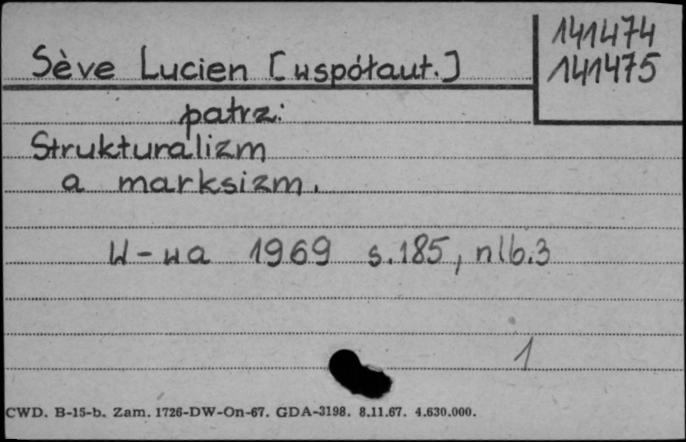 141474
141475
Sève Lucien [współaut.]
patrz:
Strukturalizm
a marksizm.
W-wa 1969 s.185, nlb.3
1
CWD. B-15-b. Zam. 1726-DW-On-67. GDA-3198. 8.11.67. 4.630.000.